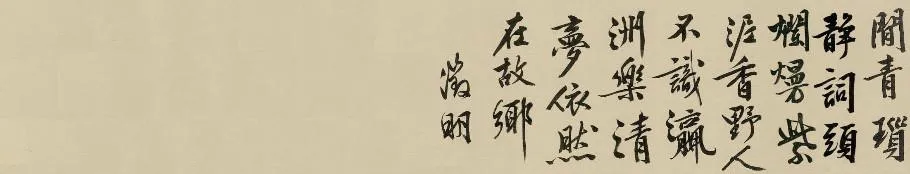 閒青瑣
靜詞頭
爛熳紫
泥香野人
不識瀛
洲樂清
夢依然
在故鄉
徵明